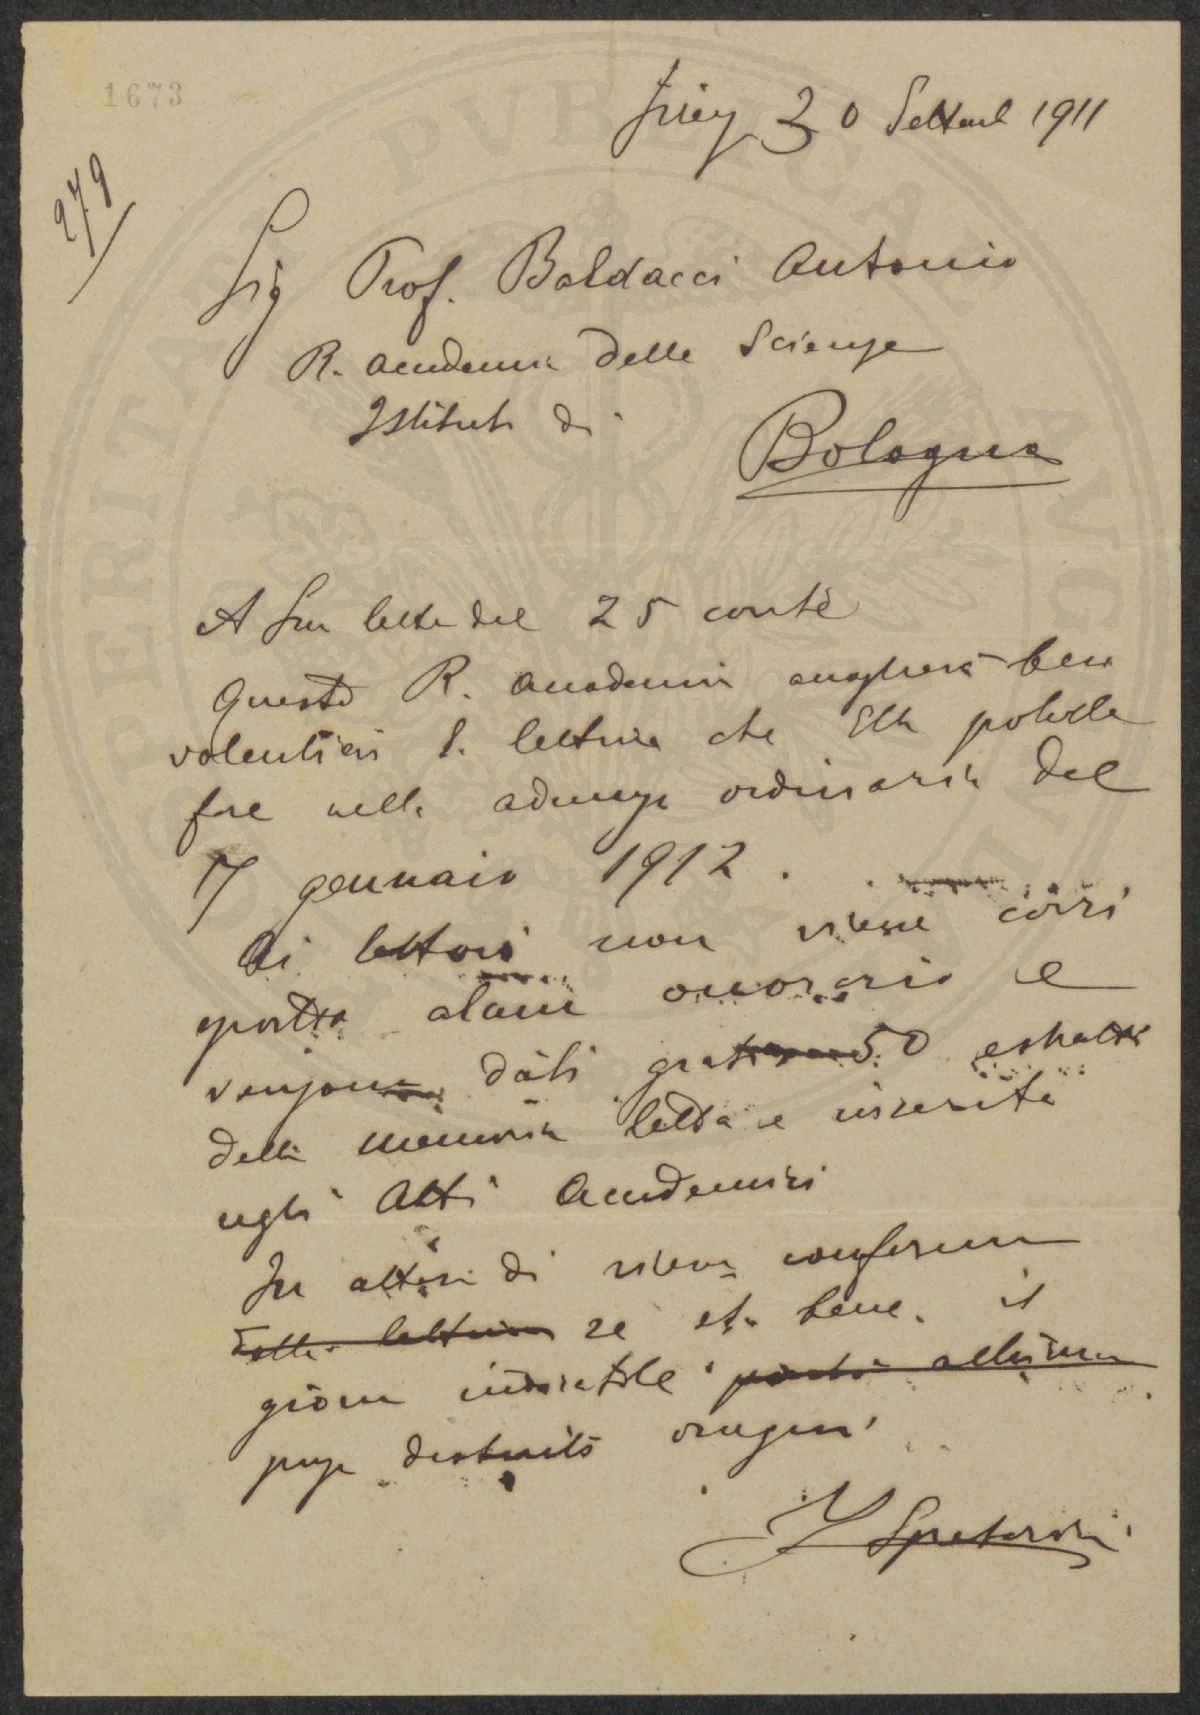 1673
279
30 Settemb 1911
Sig Prof. Baldacci Antonio
R. Accademia delle Scienze
Istituto di
Bologna
A Sua lettera del 25 corrte
Questa R. Accademia accoglierà ben
volentieri la lettura che Ella potrebbe
fare nella adunanza ordinaria del
7 gennaio 1912.
Ai lettori non viene corri
sposto alcun onorario e
vengono dati gratis 50 estratti
della memoria letta e inserita
negli Atti Accademici
In attesa di conferma
della lettura se sta bene il
giorno indicatole
distinti ossequi
Il Segretario